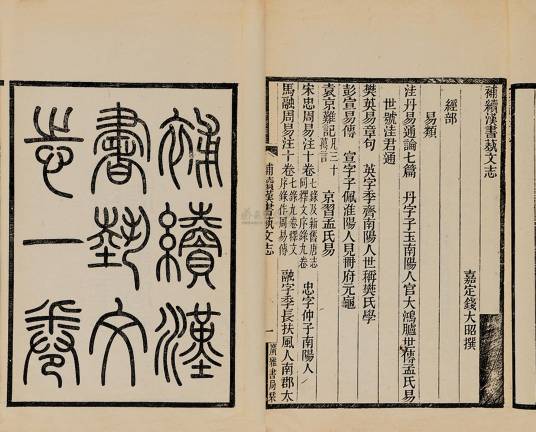 補續漢
書藝文
志一卷
補續漢書藝文志
嘉定錢大昭撰
經部
易類
洼丹易通論七篇 丹字子玉南陽人官大鴻臚世傳孟氏易
世號洼君通
樊英易章句 英字季齊南陽人世稱樊氏學
彭宣易傳 宣字子佩淮陽人見冊府元龜
袁京難記凡三十萬言 京習孟氏易
宋忠周易注十卷七錄及新舊唐志同釋文序錄九卷 忠字仲子南陽人
馬融周易注十卷七錄九卷釋文序錄作馬易傳 融字季長扶風人南郡太
補續漢書藝文志 一 廣雅書局栞